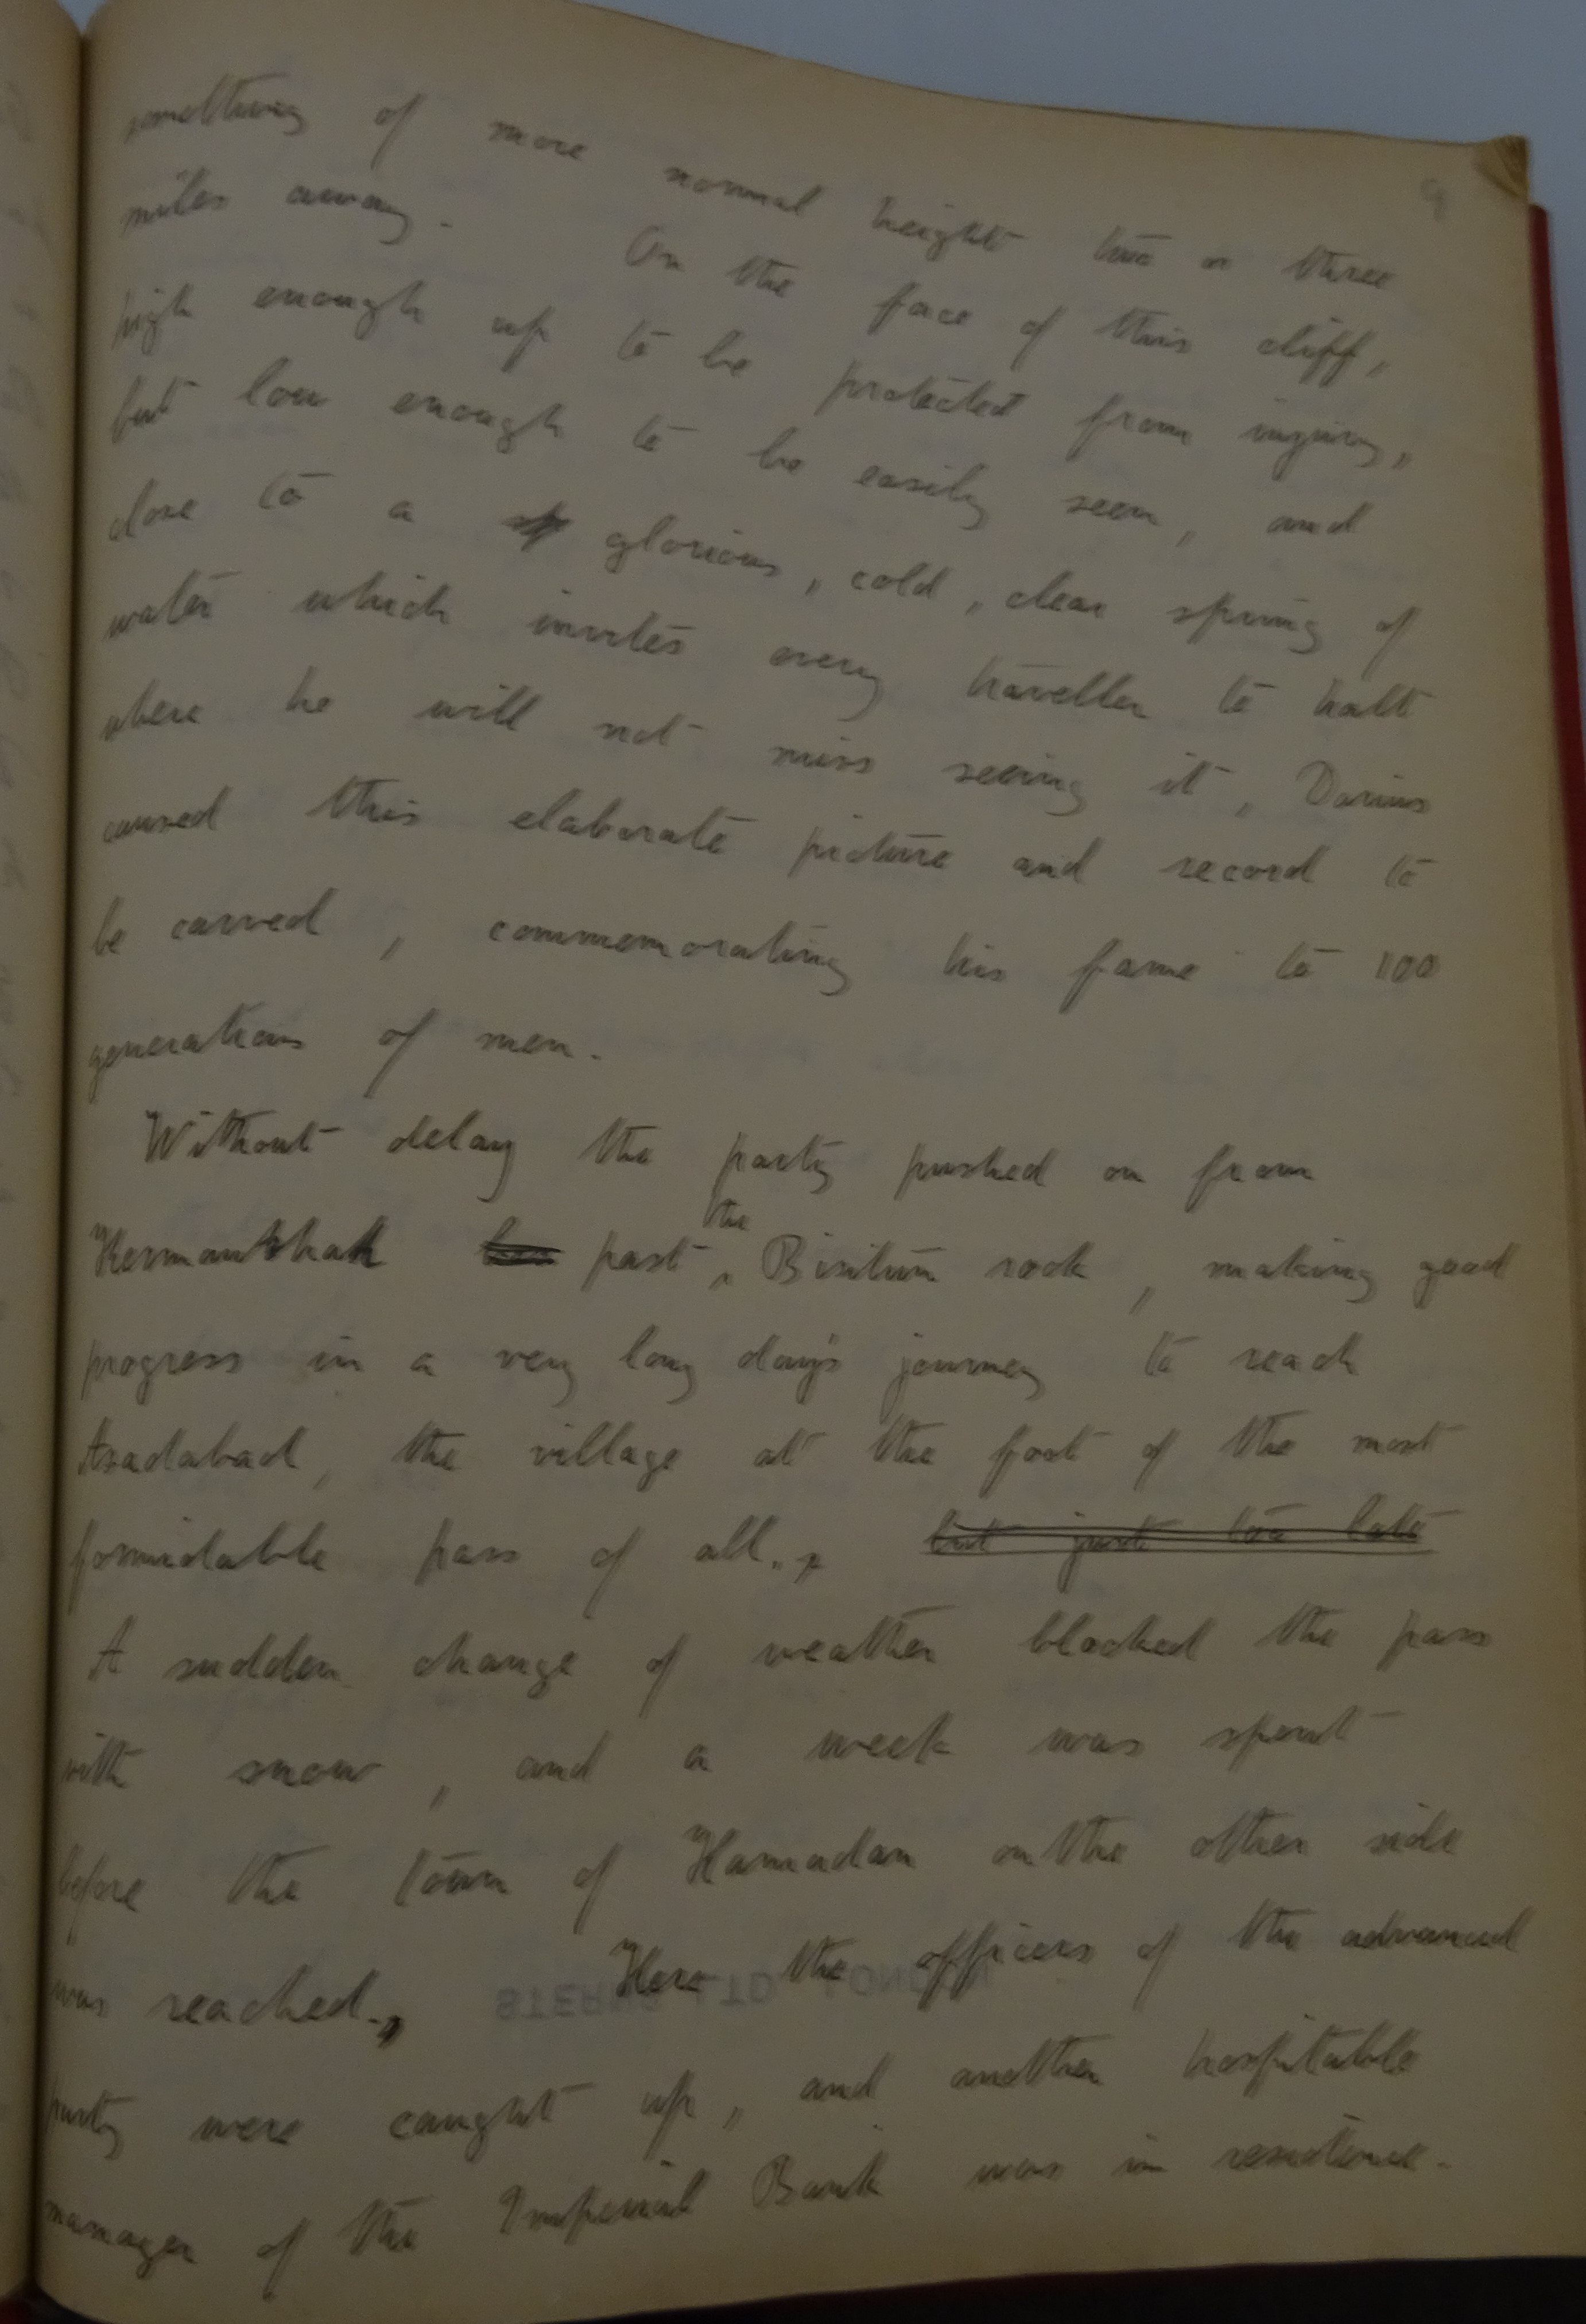 9
something of more normal height two or three
miles away. On the face of this cliff,
high enough up to be protected from injury,
but low enough to be easily seen, and
close to a glorious, cold, clear spring of
water which invites every traveller to halt
where he will not miss seeing it, Darius
caused this elaborate picture and record to
be carved, commemorating his fame to 100
generations of men.
Without delay the party pushed on from
Kermanshah past the Bisitun rock, making good
progress in a very long day's journey to reach
Asadabad, the village at the foot of the most
formidable pass of all. but just too late
A sudden change of weather blocked the pass
with snow, and a week was spent
before the town of Hamadan on the other side
was reached. Here the officers of the advanced
party were caught up, and another hospitable
manager of the Imperial Bank was in residence.